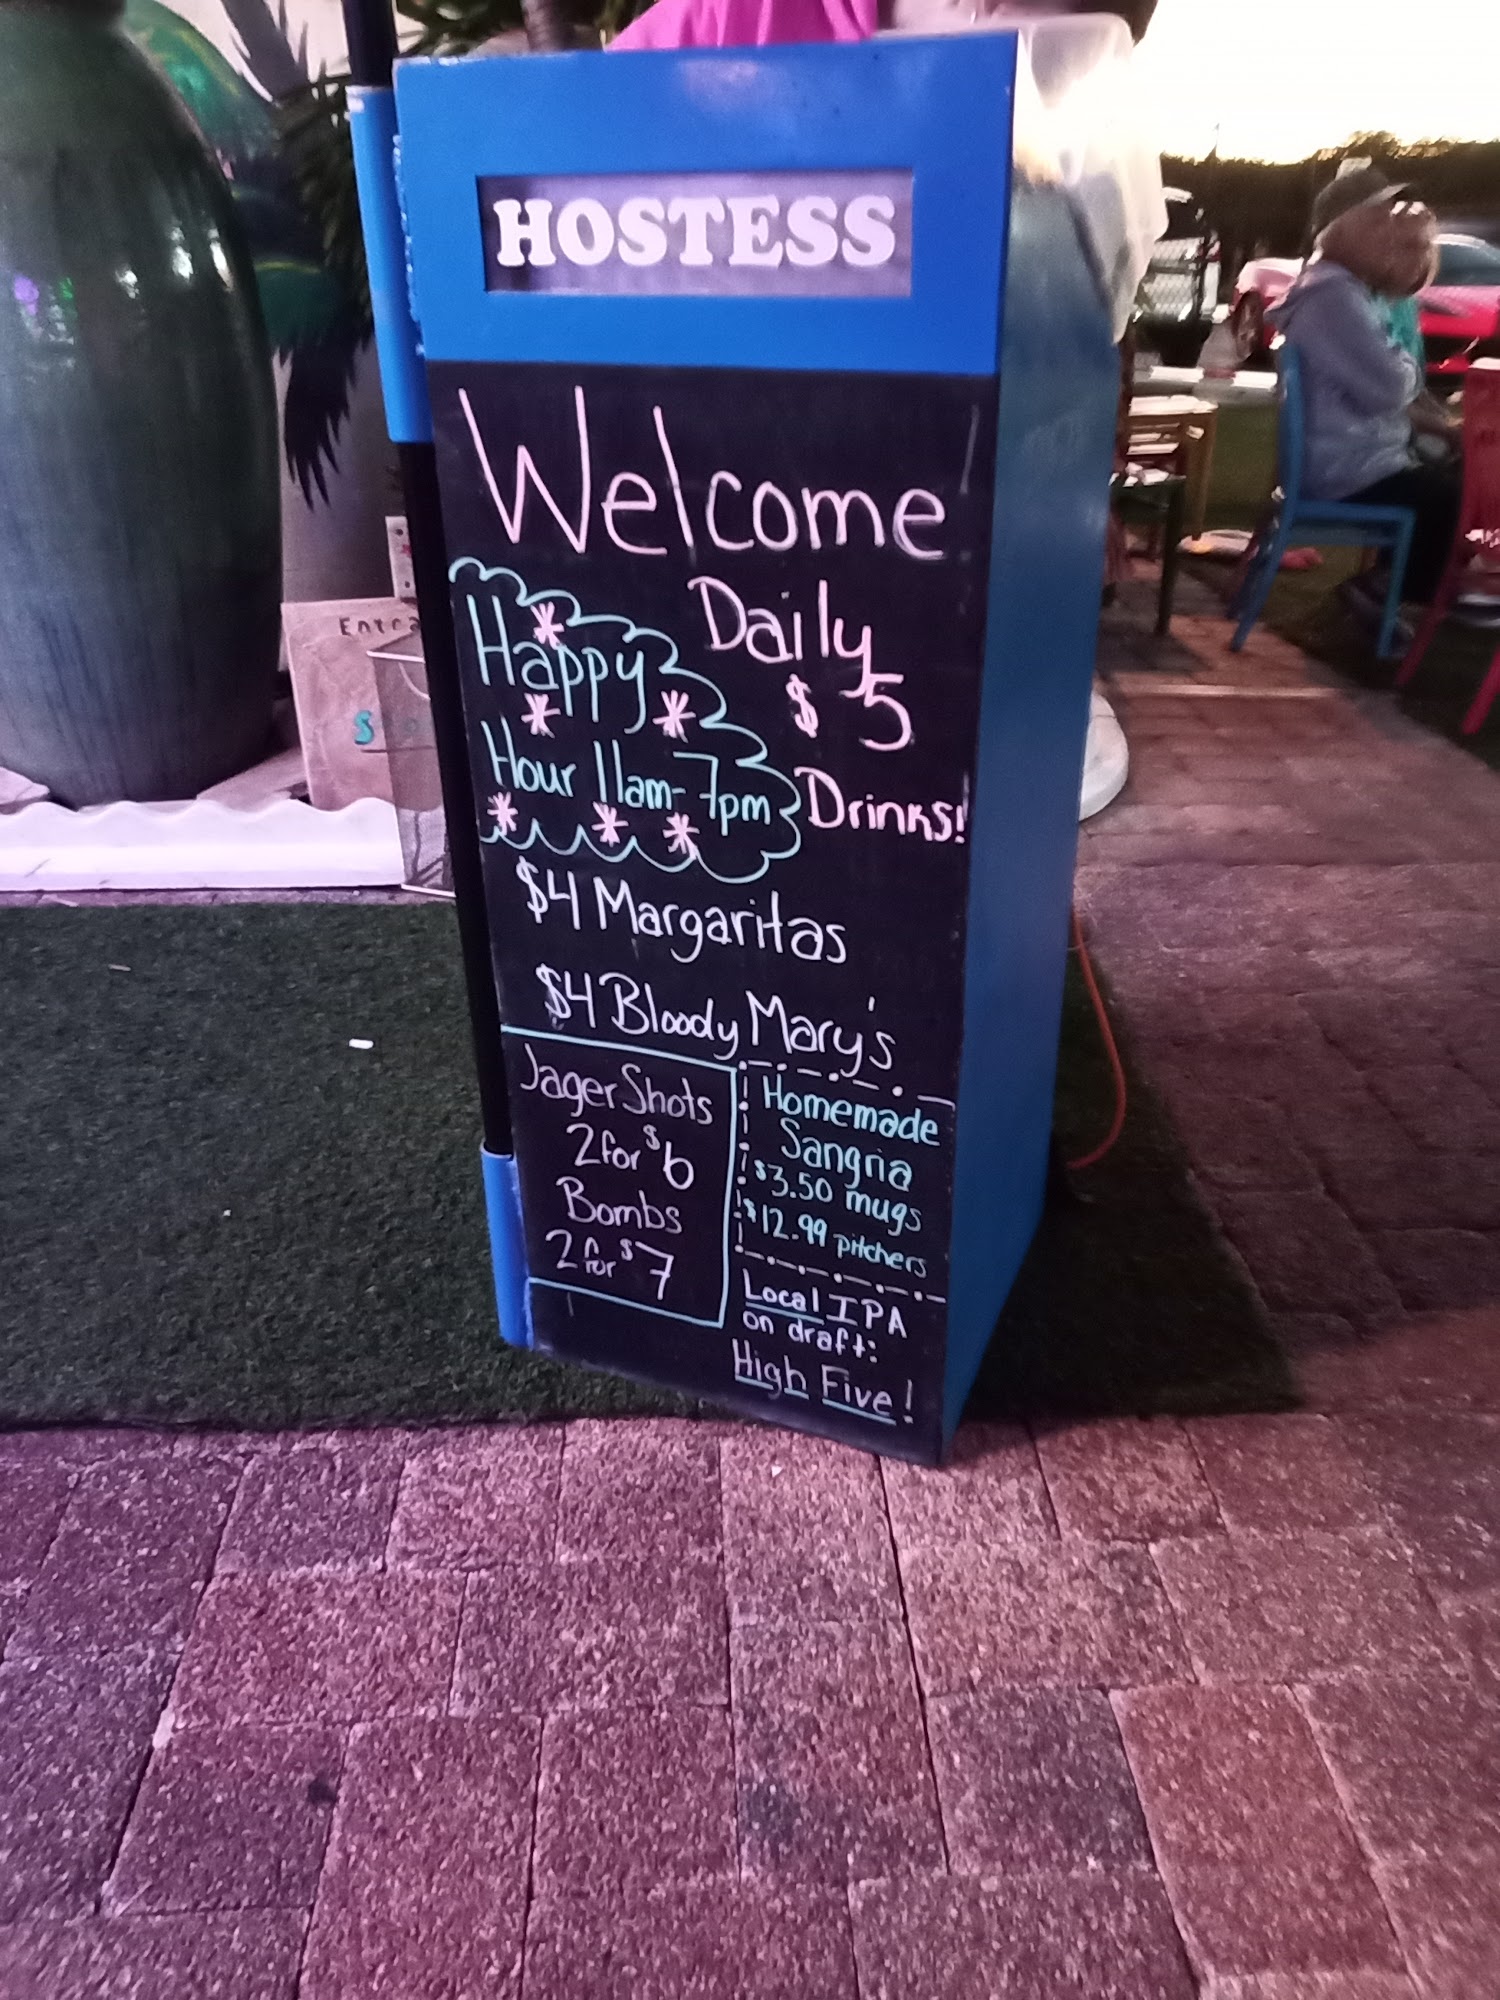 HOSTESS
Welcome
Happy
Hour 11am-7pm
Daily
$5
Drinks!
$4 Margaritas
$4 Bloody Mary's
Jager Shots
2 for $6
Bombs
2 for $7
Homemade
Sangria
$3.50 mugs
$12.99 pitchers
Local IPA
on draft:
High Five!